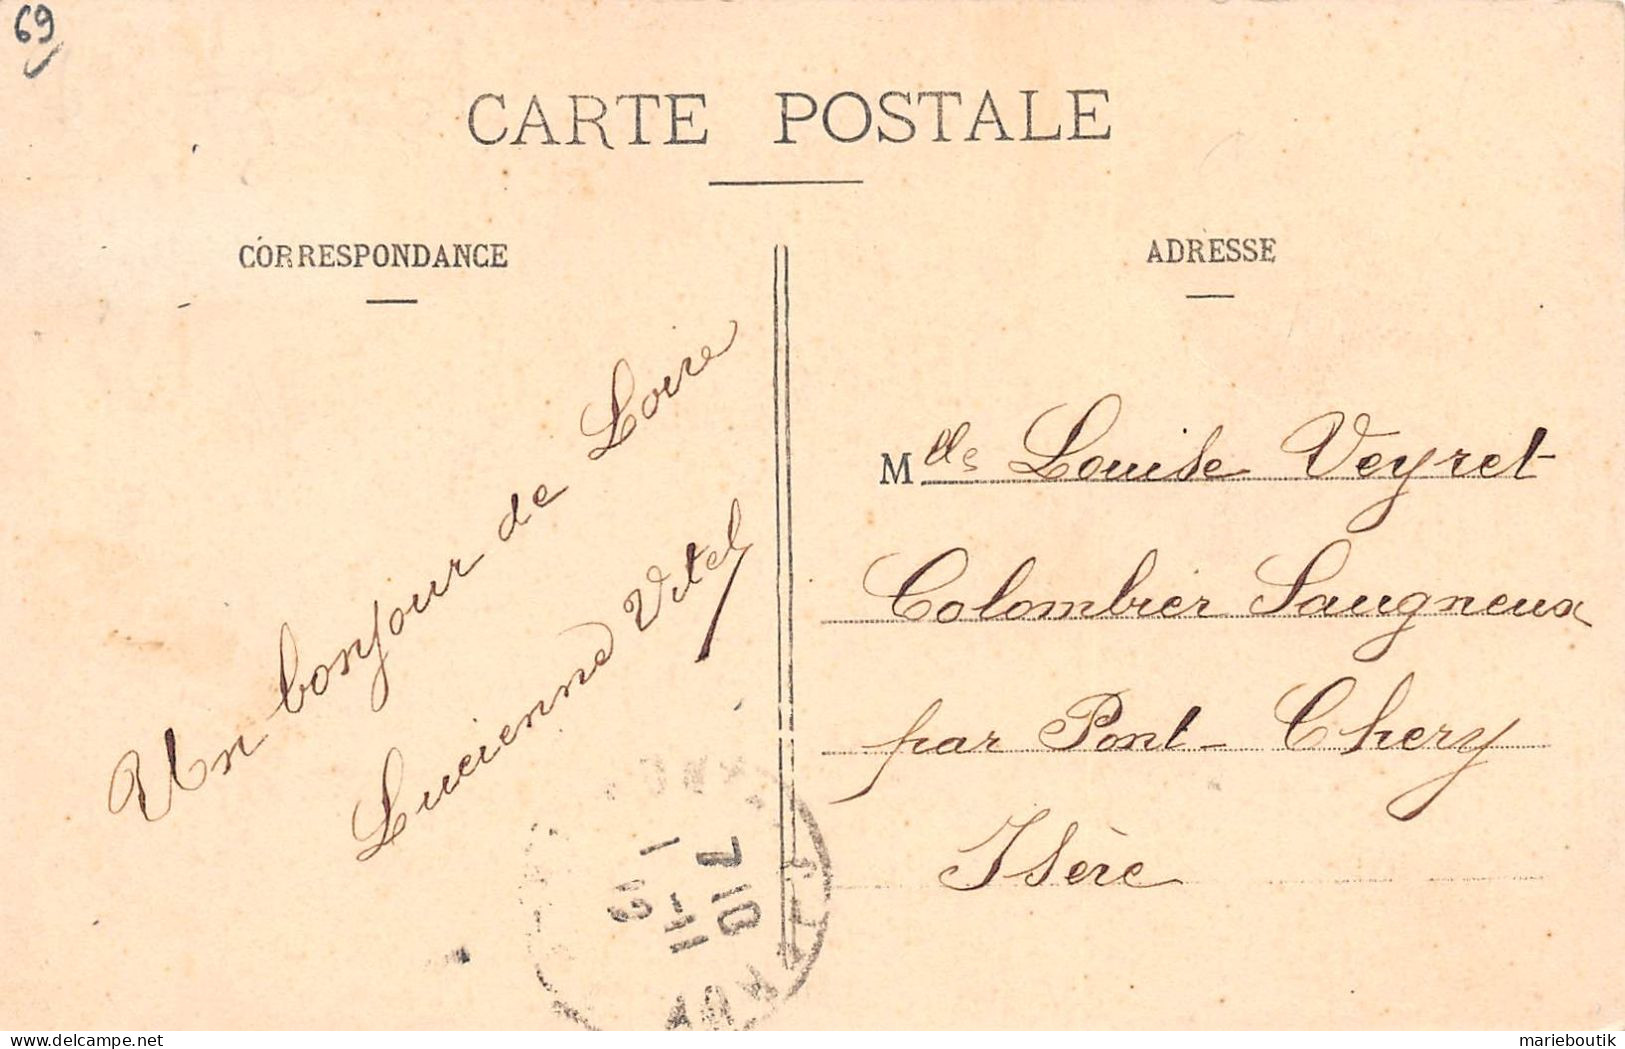 69
CARTE POSTALE
CORRESPONDANCE
Un bonjour de Loire
Lucienne Vitel
ADRESSE
Mlle Louise Veyret
Colombier Saugneux
par Pont-Chery
Isère
7 10
1 -11
delcampe.net
marieboutik